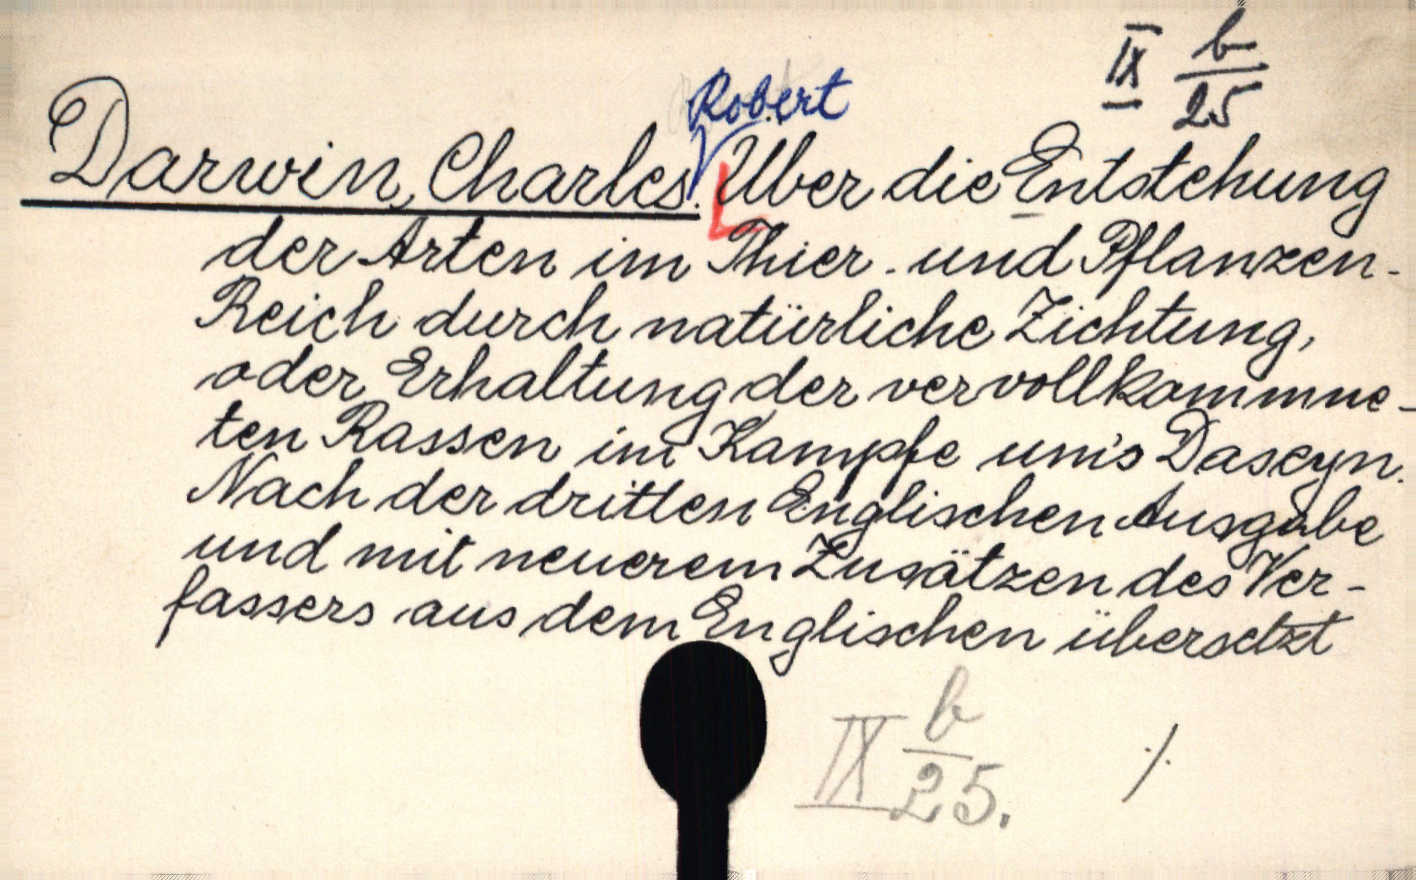 IX b/25
Robert
Darwin, Charles. Über die Entstehung
der Arten im Thier- und Pflanzen-
Reich durch natürliche Zichtung,
oder Erhaltung der vervollkommne-
ten Rassen im Kampfe um's Daseyn.
Nach der dritten Englischen Ausgabe
und mit neuerem Zusätzen des Ver-
fassers aus dem Englischen übersetzt
IX b/25.
·/.